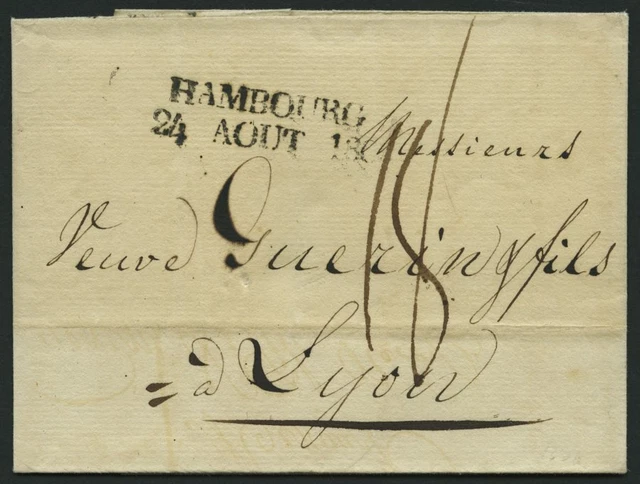 HAMBOURG
24 AOUT 18
Messieurs
Veuve Guerin & fils
à Lyon